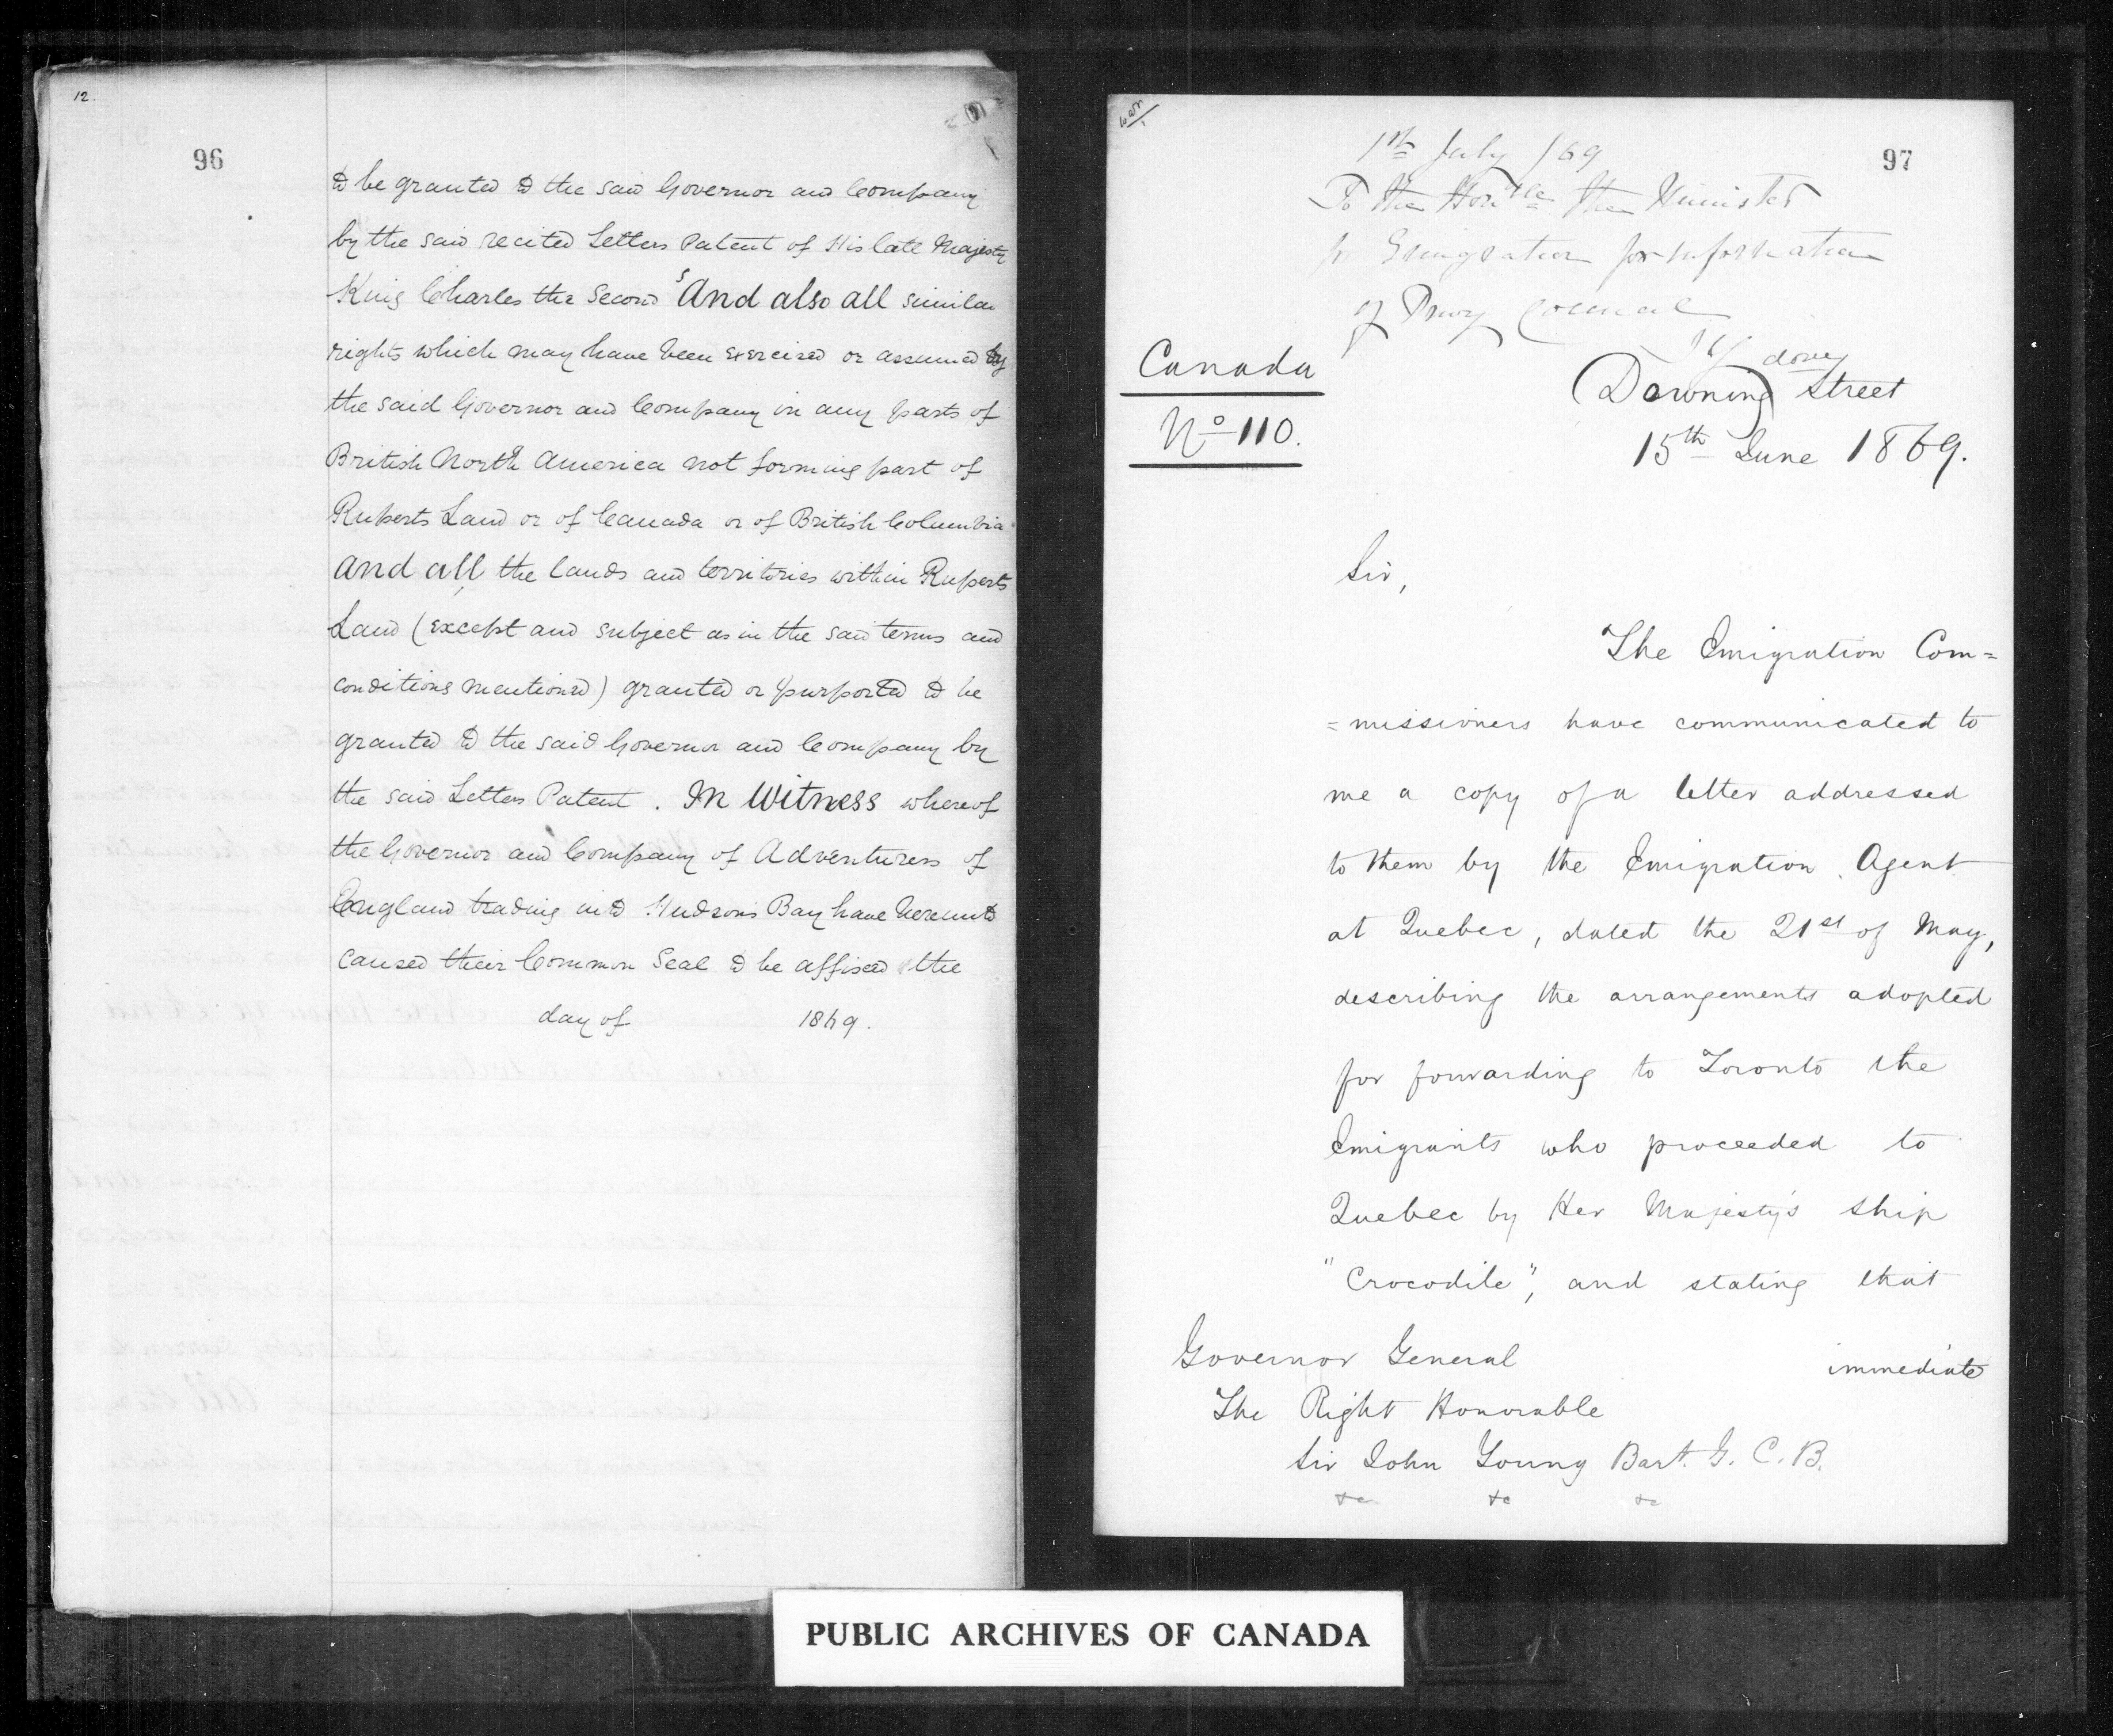 12.
96
to be granted to the said Governor and Company
by the said recited Letters Patent of His late Majesty
King Charles the Second And also all similar
rights which may have been exercised or assumed by
the said Governor and Company in any parts of
British North America not forming part of
Ruperts Land or of Canada or of British Columbia
and all the lands and territories within Ruperts
Land (except and subject as in the said terms and
conditions mentioned) granted or purported to be
granted to the said Governor and Company by
the said Letters Patent. In Witness whereof
the Governor and Company of Adventurers of
England trading into Hudsons Bay have hereunto
caused their Common Seal to be affixed the
day of 1869.
97
1st July /69
To the Honble the Minister
for Emigration for information
of Privy Council
Canada
No 110.
Downing Street
15th June 1869.
Sir,
The Emigration Com=
=missioners have communicated to
me a copy of a letter addressed
to them by the Emigration Agent
at Quebec, dated the 21st of May,
describing the arrangements adopted
for forwarding to Toronto the
Emigrants who proceeded to
Quebec by Her Majesty's Ship
"Crocodile", and stating that
immediate
Governor General
The Right Honorable
Sir John Young Bart. G. C. B.
&c &c &c
PUBLIC ARCHIVES OF CANADA